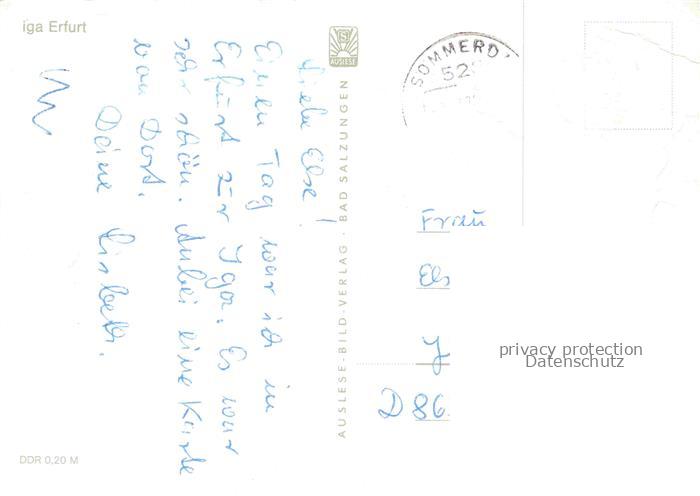 iga Erfurt
Liebe Else!
Einen Tag war ich in
Erfurt zur Iga. Es war
sehr schön. Anbei eine Karte
von Dort.
Deine Lisbeth.
AUSLESE
AUSLESE-BILD-VERLAG · BAD SALZUNGEN
SOMMERD
52
Frau
Els
D 86
privacy protection
Datenschutz
DDR 0,20 M